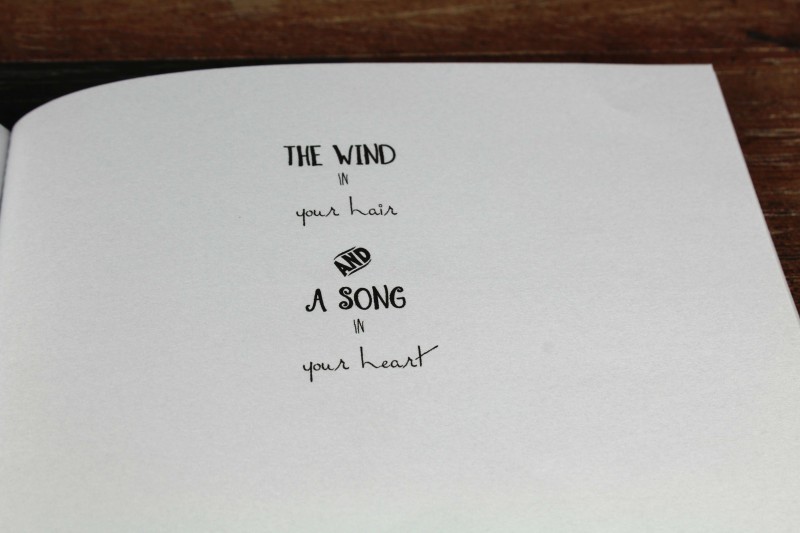 THE WIND
IN
your hair
AND
A SONG
IN
your heart